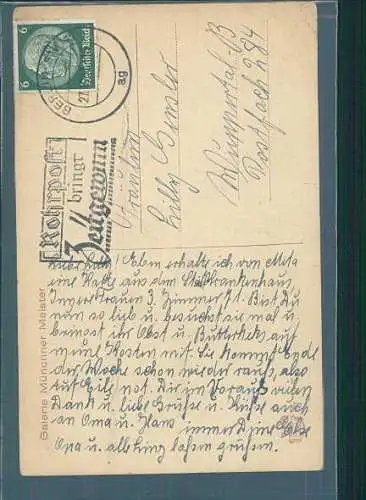 6
6
Deutsches Reich
BERLIN
ag
Rohrpost
bringt
Zeitgewinn
Fräulein
Lilly
Wuppertal-B
Postfach 284
Galerie Münchner Meister
Eben erhalte ich von Meta
eine Karte aus dem Stdt. Krankenhaus
Innere Frauen 3. Zimmer 71. Bist Du
nun so lieb u. besuchst sie mal u.
bringst ihr Obst u. Butterkeks auf
meine Kosten mit. Sie kommt Ende
der Woche schon wieder raus, also
tut Eile not. Dir im Voraus vielen
Dank u. liebe Grüsse u. Küsse auch
an Oma u. Hans immer Deine Else
Opa u. alle lassen grüssen.